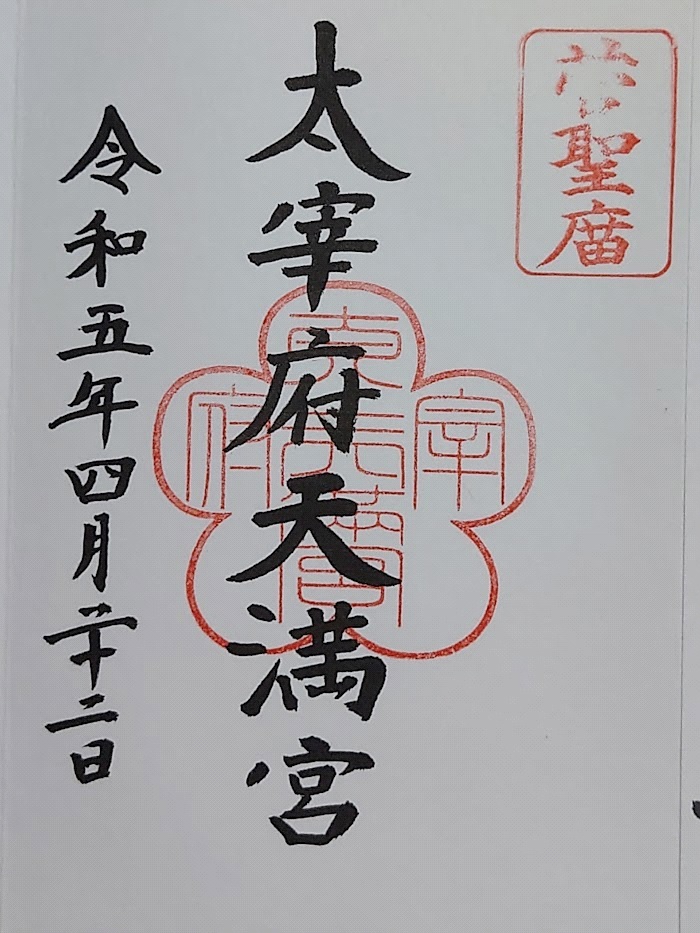 菅聖庿
太宰府天満宮
令和五年四月二十二日